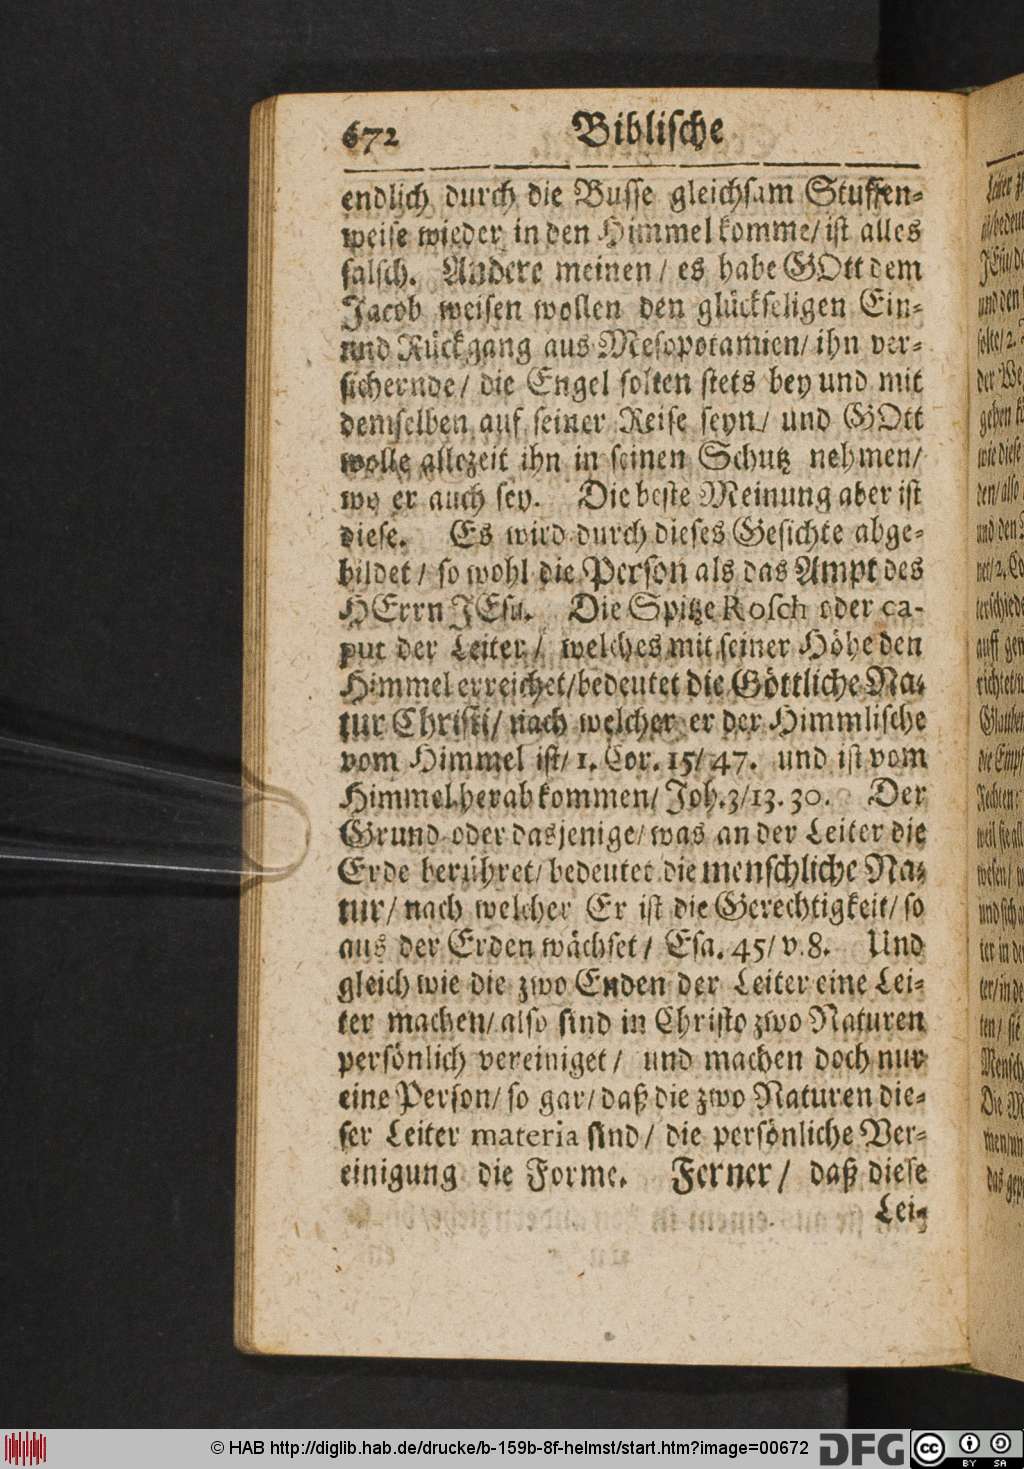 672 Biblische
endlich durch die Busse gleichsam Stuffen-
weise wieder in den Himmel komme/ ist alles
falsch. Andere meinen/ es habe GOtt dem
Jacob weisen wollen den glückseligen Ein-
und Rückgang aus Mesopotamien/ ihn ver-
sichernde/ die Engel solten stets bey und mit
demselben auf seiner Reise seyn/ und GOtt
wolle allezeit ihn in seinen Schutz nehmen/
wo er auch sey. Die beste Meinung aber ist
diese. Es wird durch dieses Gesichte abge-
bildet/ so wohl die Person als das Ampt des
HErrn JEsu. Die Spitze Rosch oder ca-
put der Leiter/ welches mit seiner Höhe den
Himmel erreichet/ bedeutet die Göttliche Na-
tur Christi/ nach welcher er der Himmlische
vom Himmel ist/ 1. Cor. 15/ 47. und ist vom
Himmel herab kommen/ Joh. 3/ 13. 30. Der
Grund oder dasjenige/ was an der Leiter die
Erde berühret/ bedeutet die menschliche Na-
tur/ nach welcher Er ist die Gerechtigkeit/ so
aus der Erden wächset/ Esa. 45/ v. 8. Und
gleich wie die zwo Enden der Leiter eine Lei-
ter machen/ also sind in Christo zwo Naturen
persönlich vereiniget/ und machen doch nur
eine Person/ so gar/ daß die zwo Naturen die-
ser Leiter materia sind/ die persönliche Ver-
einigung die Forme. Ferner/ daß diese
Lei-
© HAB http://diglib.hab.de/drucke/b-159b-8f-helmst/start.htm?image=00672 DFG cc BY SA